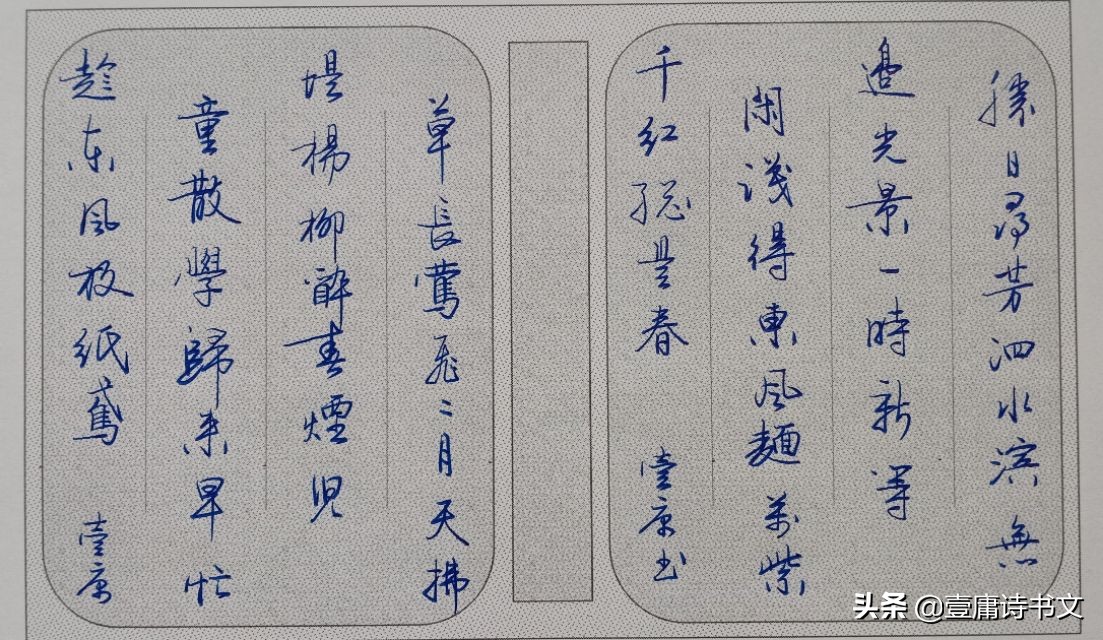 勝日尋芳泗水濱無
邊光景一時新等
閑淺得東風麵萬紫
千红總是春 壹庸书
草長鶯飛二月天拂
堤楊柳醉春煙兒
童散學歸来早忙
趁東风放纸鳶 壹庸
头条 @壹庸诗书文